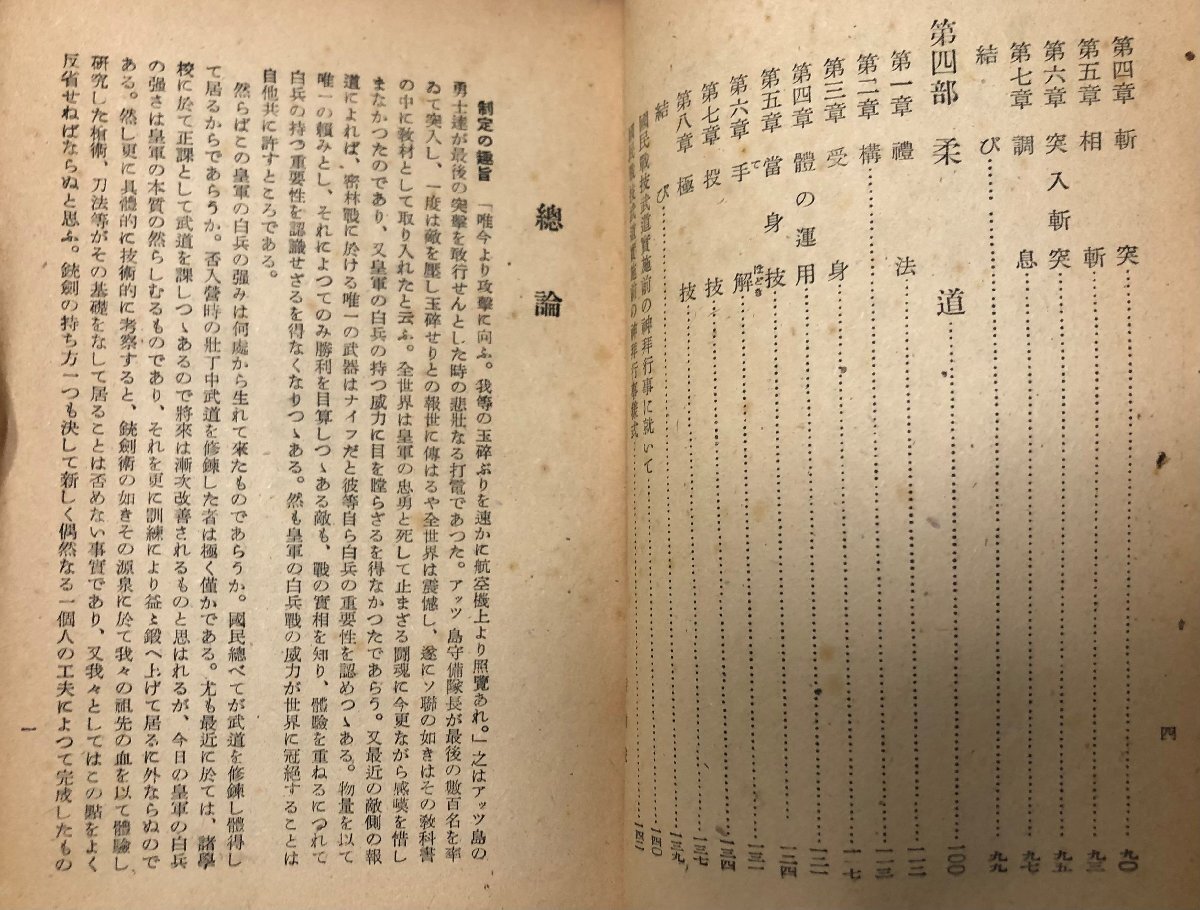 四
第四章 斬突……九〇
第五章 相斬……九三
第六章 突入斬突……九五
第七章 調息……九七
結び……九九
第四部 柔道……一〇〇
第一章 禮法……一一二
第二章 構……一一三
第三章 受身……一一七
第四章 體の運用……一二一
第五章 當身技……一二四
第六章 手解……一三一
第七章 投技……一三四
第八章 極技……一三七
結び……一三九
國民戰技武道實施前の神拜行事に就いて……一四〇
國民戰技武道實施前の神拜行事樣式……一四二
總論
制定の趣旨 「唯今より攻擊に向ふ。我等の玉碎ぶりを速かに航空機上より照覽あれ。」之はアッツ島の
勇士達が最後の突擊を敢行せんとした時の悲壯なる打電であつた。アッツ島守備隊長が最後の數百名を率
ゐて突入し、一度は敵を壓し玉碎せりとの報世に傳はるや全世界は震憾し、遂にソ聯の如きはその敎科書
の中に敎材として取り入れたと云ふ。全世界は皇軍の忠勇と死して止まざる鬪魂に今更ながら感嘆を惜し
まなかつたのであり、又皇軍の白兵の持つ威力に目を瞠らざるを得なかつたであらう。又最近の敵側の報
道によれば、密林戰に於ける唯一の武器はナイフだと彼等自ら白兵の重要性を認めつゝある。物量を以て
唯一の賴みとし、それによつてのみ勝利を目算しつゝある敵も、戰の實相を知り、體驗を重ねるにつれて
白兵の持つ重要性を認識せざるを得なくなりつゝある。然も皇軍の白兵戰の威力が世界に冠絕することは
自他共に許すところである。
然らばこの皇軍の白兵の强みは何處から生れて來たものであらうか。國民總べてが武道を修鍊し體得し
て居るからであらうか。否入營時の壯丁中武道を修鍊した者は極く僅かである。尤も最近に於ては、諸學
校に於て正課として武道を課しつゝあるので將來は漸次改善されるものと思はれるが、今日の皇軍の白兵
の强さは皇軍の本質の然らしむるものであり、それを更に訓練により益々鍛へ上げて居るに外ならぬので
ある。然し更に具體的に技術的に考察すると、銃劍術の如きその源泉に於て我々の祖先の血を以て體驗し
硏究した槍術、刀法等がその基礎をなして居ることは否めない事實であり、又我々としてはこの點をよく
反省せねばならぬと思ふ。銃劍の持ち方一つも決して新しく偶然なる一個人の工夫によつて完成したもの
一